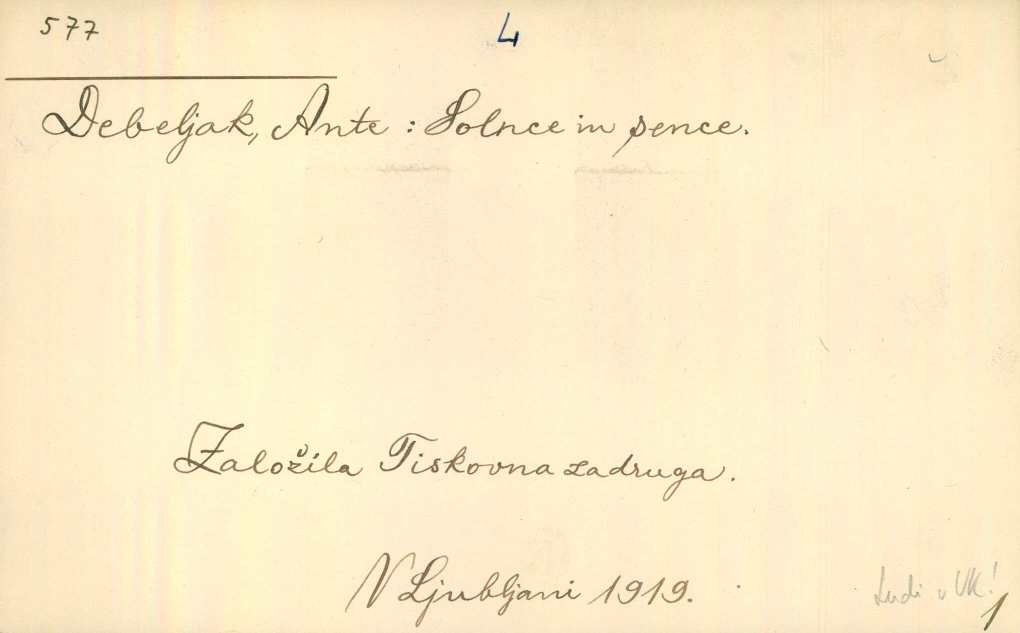 577
4
Debeljak, Ante : Solnce in sence.
Založila Tiskovna zadruga.
V Ljubljani 1919.
Ludi v UK!
1